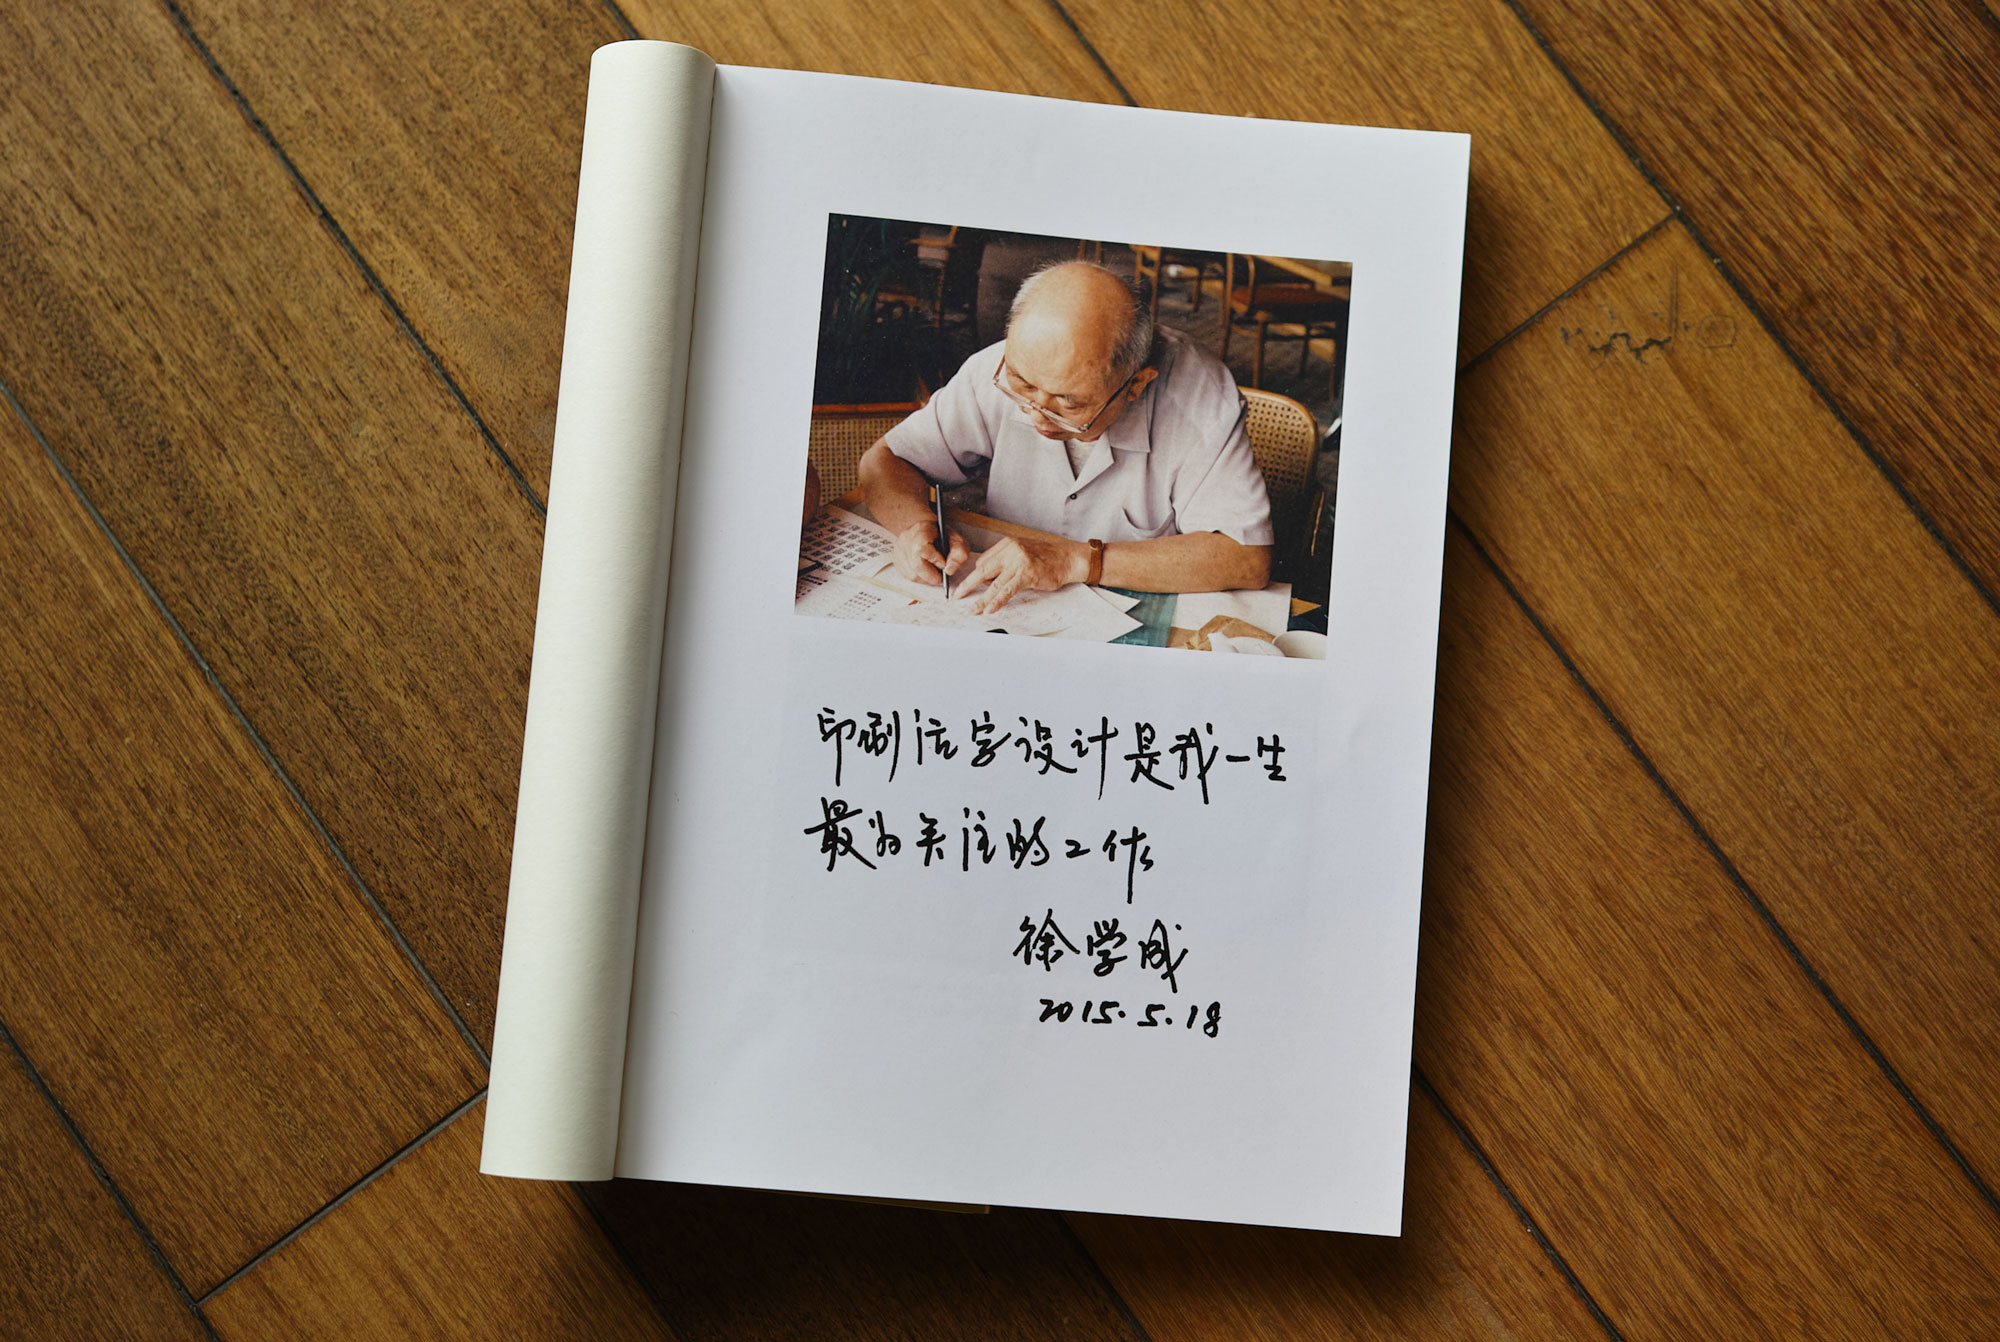 印刷活字设计是我一生
最为关注的工作
徐学成
2015.5.18